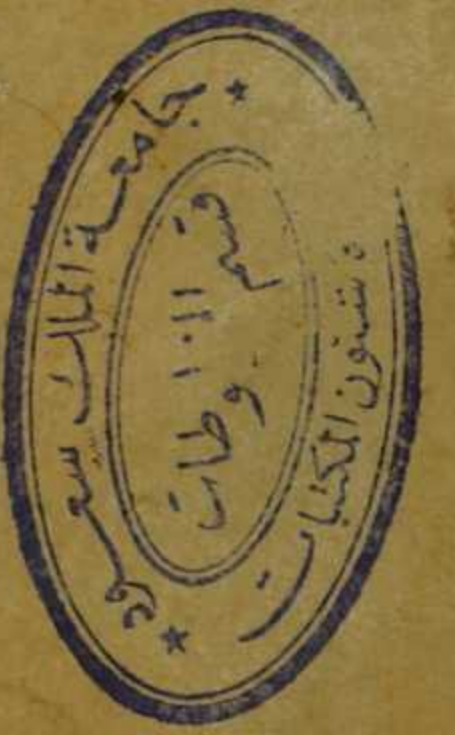 جامعة الملك سعود
قسم
وطات
شئون المكتبات